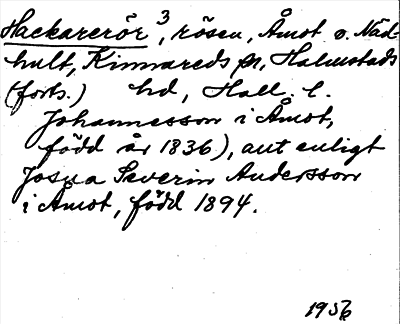 Hackarerör ³, rösen, Åmot o. Näd-
hult, Kinnareds sn, Halmstads
(forts.) hd, Hall. l.
Johannesson i Åmot,
född år 1836), ant enligt
Josua Severin Andersson
i Åmot, född 1894.
1956